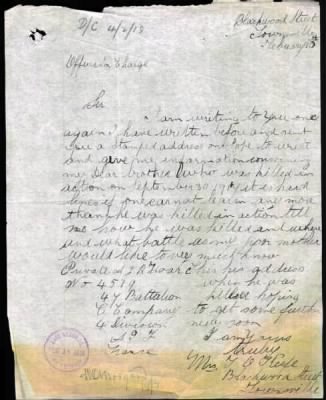 D/C 4/2/18
Blackwood Street
Townsville
February
Officer in Charge
Sir
I am writing to you once
again I have written before and sent
you a stamped address envelope to write
and give me information concerning
my dear brother who was killed in
action on September 30 1917 it is hard
lines if one cannot learn any more
than he was killed in action tell
me how he was killed and where
and what battle as my poor mother
would like to very much know
Private J R this his address
No 4589 when he was
47 Battalion killed hoping
C Company to get some further
4 division news soon
A I F I am yours
France
Mrs F C
Blackwood Street
Townsville